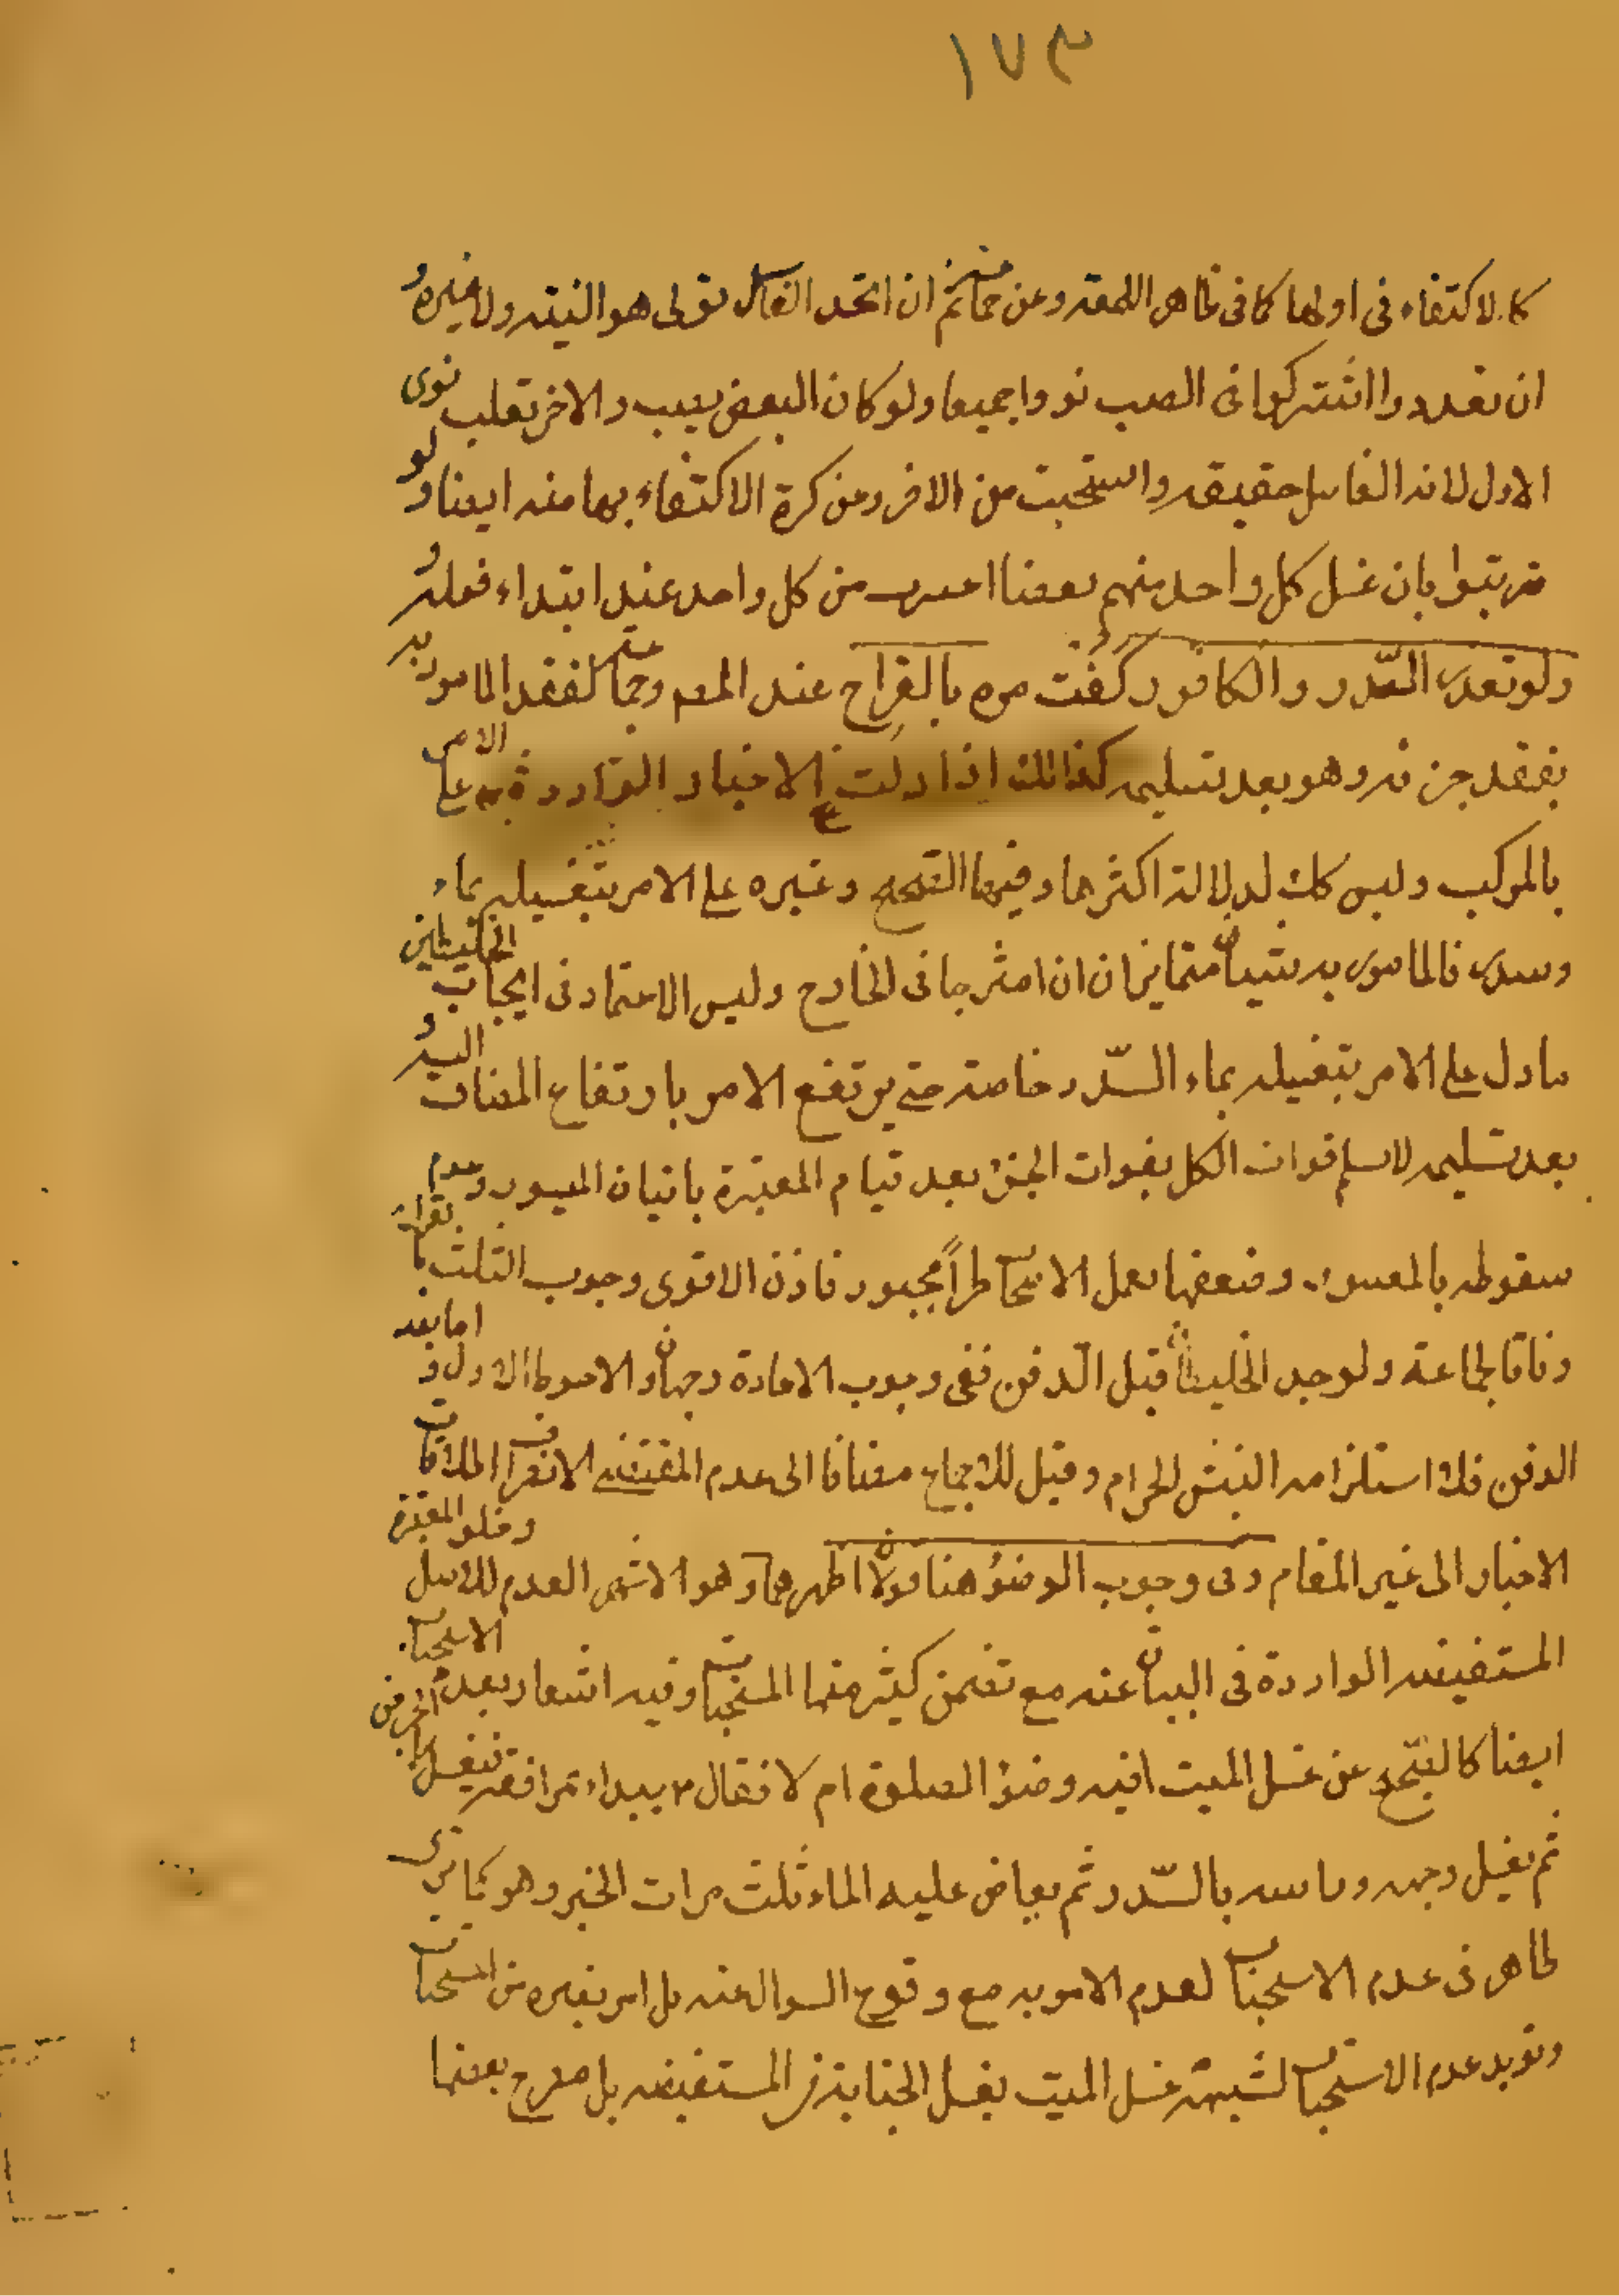 ١٧٣
كالاكتفاء فى اولها كما فى ظاهر اللمعة وعن جماعة ثم ان اتحد الغاسل تولى هو النية ولا غيره و
ان تعددوا واشتركوا فى الصب نووا جميعا ولو كان البعض يصب والاخر يقلب نوى
الاول لانه الغاسل حقيقة واستحبت من الاخر وعن كرة الاكتفاء بها منه ايضا ولو
ترتبوا بان غسل كل واحد منهم بعضا اعتبرت من كل واحد عند ابتداء فعله و
ولو تعذر السّدر والكافور كفت مرة بالقراح عند المص وجماعة لفقد المامور به
بفقد جزئه وهو بعد تسليمه كذلك اذا دلت الاخبار الواردة به على الامر
بالمركب وليس كك لدلالة اكثرها وفيها الصحيح وغيره على الامر بتغسيله بماء
وسدر فالمامور به شيئان متمايزان ان امتزجا فى الخارج وليس الاعتماد فى ايجاب الخليطين
ما دل على الامر بتغسيله بماء السّدر خاصة حتى يرتفع الامر بارتفاع المضاف اليه و
بعد تسليمه لا نسلم فوات الكل بفوات الجزء بعد قيام المعتبرة باتيان الميسور وعدم
سقوطه بالمعسور وضعفها بعمل الاصحاب طراً مجبور فاذن الاقوى وجوب الثلث بالقراح
وفاقا لجماعة ولو وجد الخليطان قبل الدفن ففى وجوب الاعادة وجهان والاحوط الاول واما بعد
الدفن فلا استلزامه النبش الحرام وقيل للاجماع مضافا الى عدم المقتضى لانصراف اطلاقات
الاخبار الى غير المقام وفى وجوب الوضوء هنا قولان اظهرهما وهو الاشهر العدم للاصل وخلو المعتبرة
المستفيضة الواردة فى البيان عنه مع تضمن كثير منها المستحبات وفيه اشعار بعدم الاستحباب
ايضا كالصحيح عن غسل الميت افيه وضوء الصلوة ام لا فقال ٣ يبداء بمرافقه فيغسل بالحرض
ثم يغسل وجهه وراسه بالسّدر ثم يفاض عليه الماء ثلث مرات الخبر وهو كما ترى
ظاهر فى عدم الاستحباب لعدم الامر به مع وقوع السوال عنه بل امر بغيره من المستحبات
ويويد عدم الاستحباب تشبيه غسل الميت بغسل الجنابة فى المستفيضة بل صرح بعضها